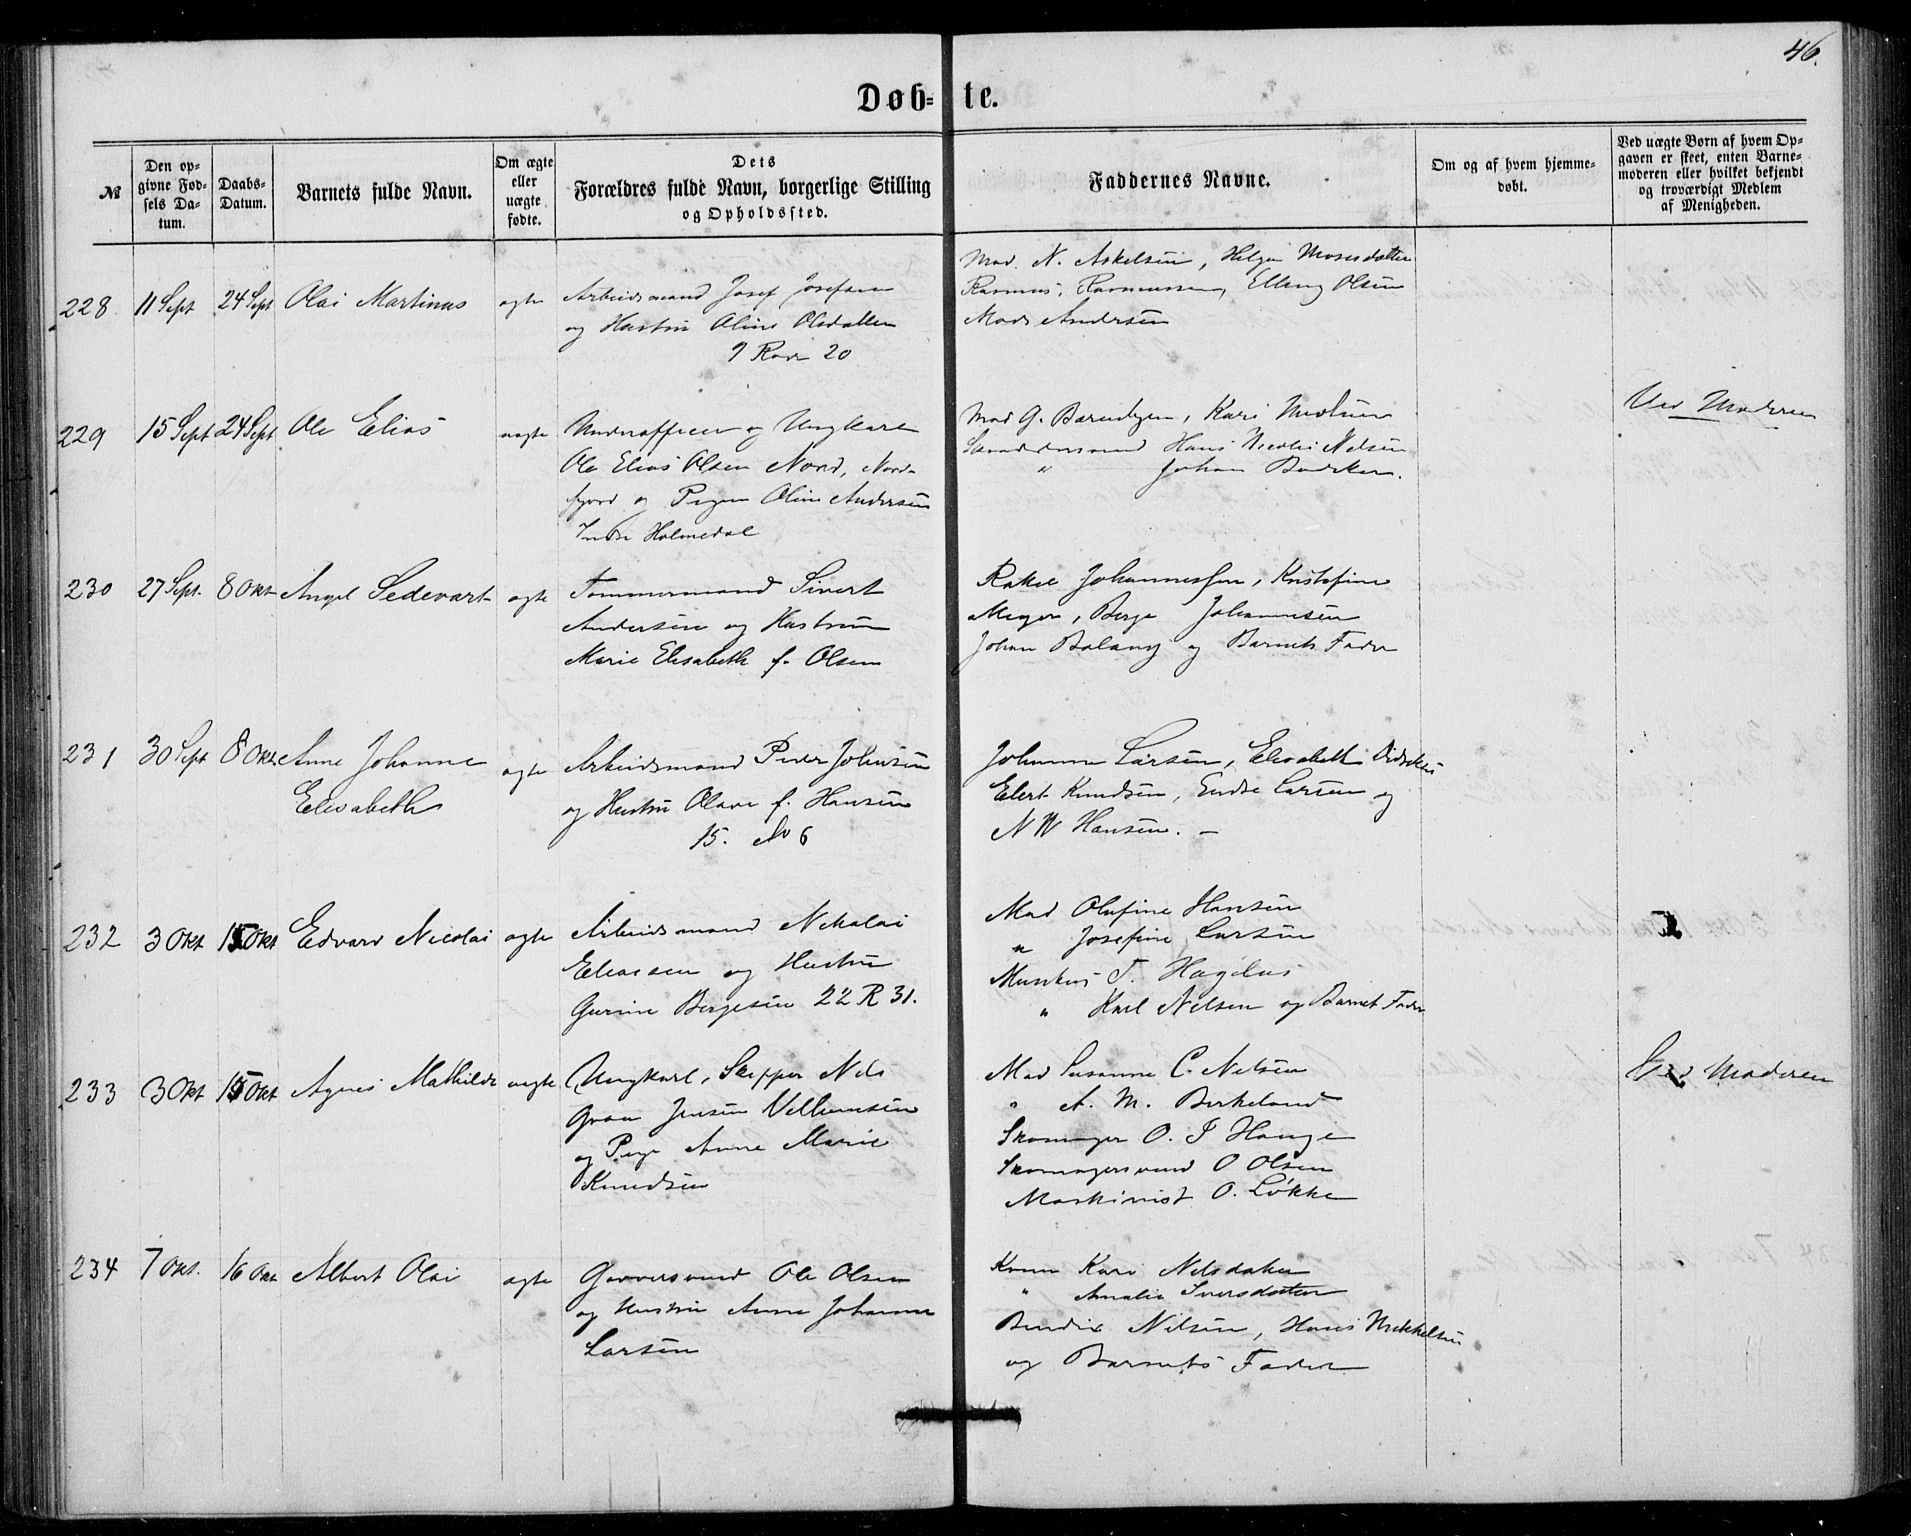 46.
Døb- te.
№
Den op-
givne Fød-
sels Da-
tum.
Daabs-
Datum.
Barnets fulde Navn.
Om ægte
eller
uægte
fødte.
Dets
Forældres fulde Navn, borgerlige Stilling
og Opholdssted.
Faddernes Navne.
Om og af hvem hjemme-
døbt.
Ved uægte Børn af hvem Op-
gaven er skeet, enten Barne-
moderen eller hvilket bekjendt
og troværdigt Medlem
af Menigheden.
228 11 Sept 24 Sept Olai Martinus ægte
Arbeidsmand Josef Josefsen
og Hustru Oline Olsdatter
9 Rode 20
Mad. N. Askelsen, Helga Mosesdatter
Rasmus Rasmussen, Elling Olsen
Mads Andersen
229 15 Sept 24 Sept Ole Elias uægte
Underofficer og Ungkarl
Ole Elias Olsen Nord, Nord-
fjord og Pigen Oline Andersen
Indre Holmedal
Mad G. , Kari
Hans Nicolai Nilsen
" Johan
Ved Moderen
230 27 Sept. 8 Okt Angel Sedevart ægte
Tømmermand Sivert
Andersen og Hustru
Marie Elisabeth f. Olsen
Rakel Johannessen, Kristofine
Meyer, Berge Johannesen
Johan Balany og Barnets Fader
231 30 Sept 8 Okt Anne Johanne
Elisabeth
ægte
Arbeidsmand Peder Johnsen
og Hustru Olava f. Hansen
15. No 6
Johanne Larsen, Elisabeth Didriksen
Elert Knudsen, Endre Larsen og
N W Hansen. —
232 3 Okt 15 Okt Edvard Nicolai ægte
Arbeidsmand Nikolai
Eliassen og Hustru
Gurine Bergesen 22 R 31.
Mad Olufine Hansen
" Josefine Larsen
Musikus T. Hagelus
" Karl Nelsen og Barnets Fader
233 3 Okt 15 Okt Agnes Mathilde uægte
Ungkarl, Skipper Nils
Graa Jensen Vilhumsen
og Pige Anne Marie
Knudsen
Mad Susanne C. Nelsen
" A. M. Birkeland
Skomager O. T Hauge
Skomagersvend O Olsen
Maskinist O. Løkke
Ved Moderen
234 7 Okt. 16 Okt Albert Olai ægte
Garversvend Ole Olsen
og Hustru Anne Johanne
Larsen
Kone Kari Nilsdatter
" Amalie Iversdatter
Bendix Nilsen, Hans Mikkelsen
og Barnets Fader